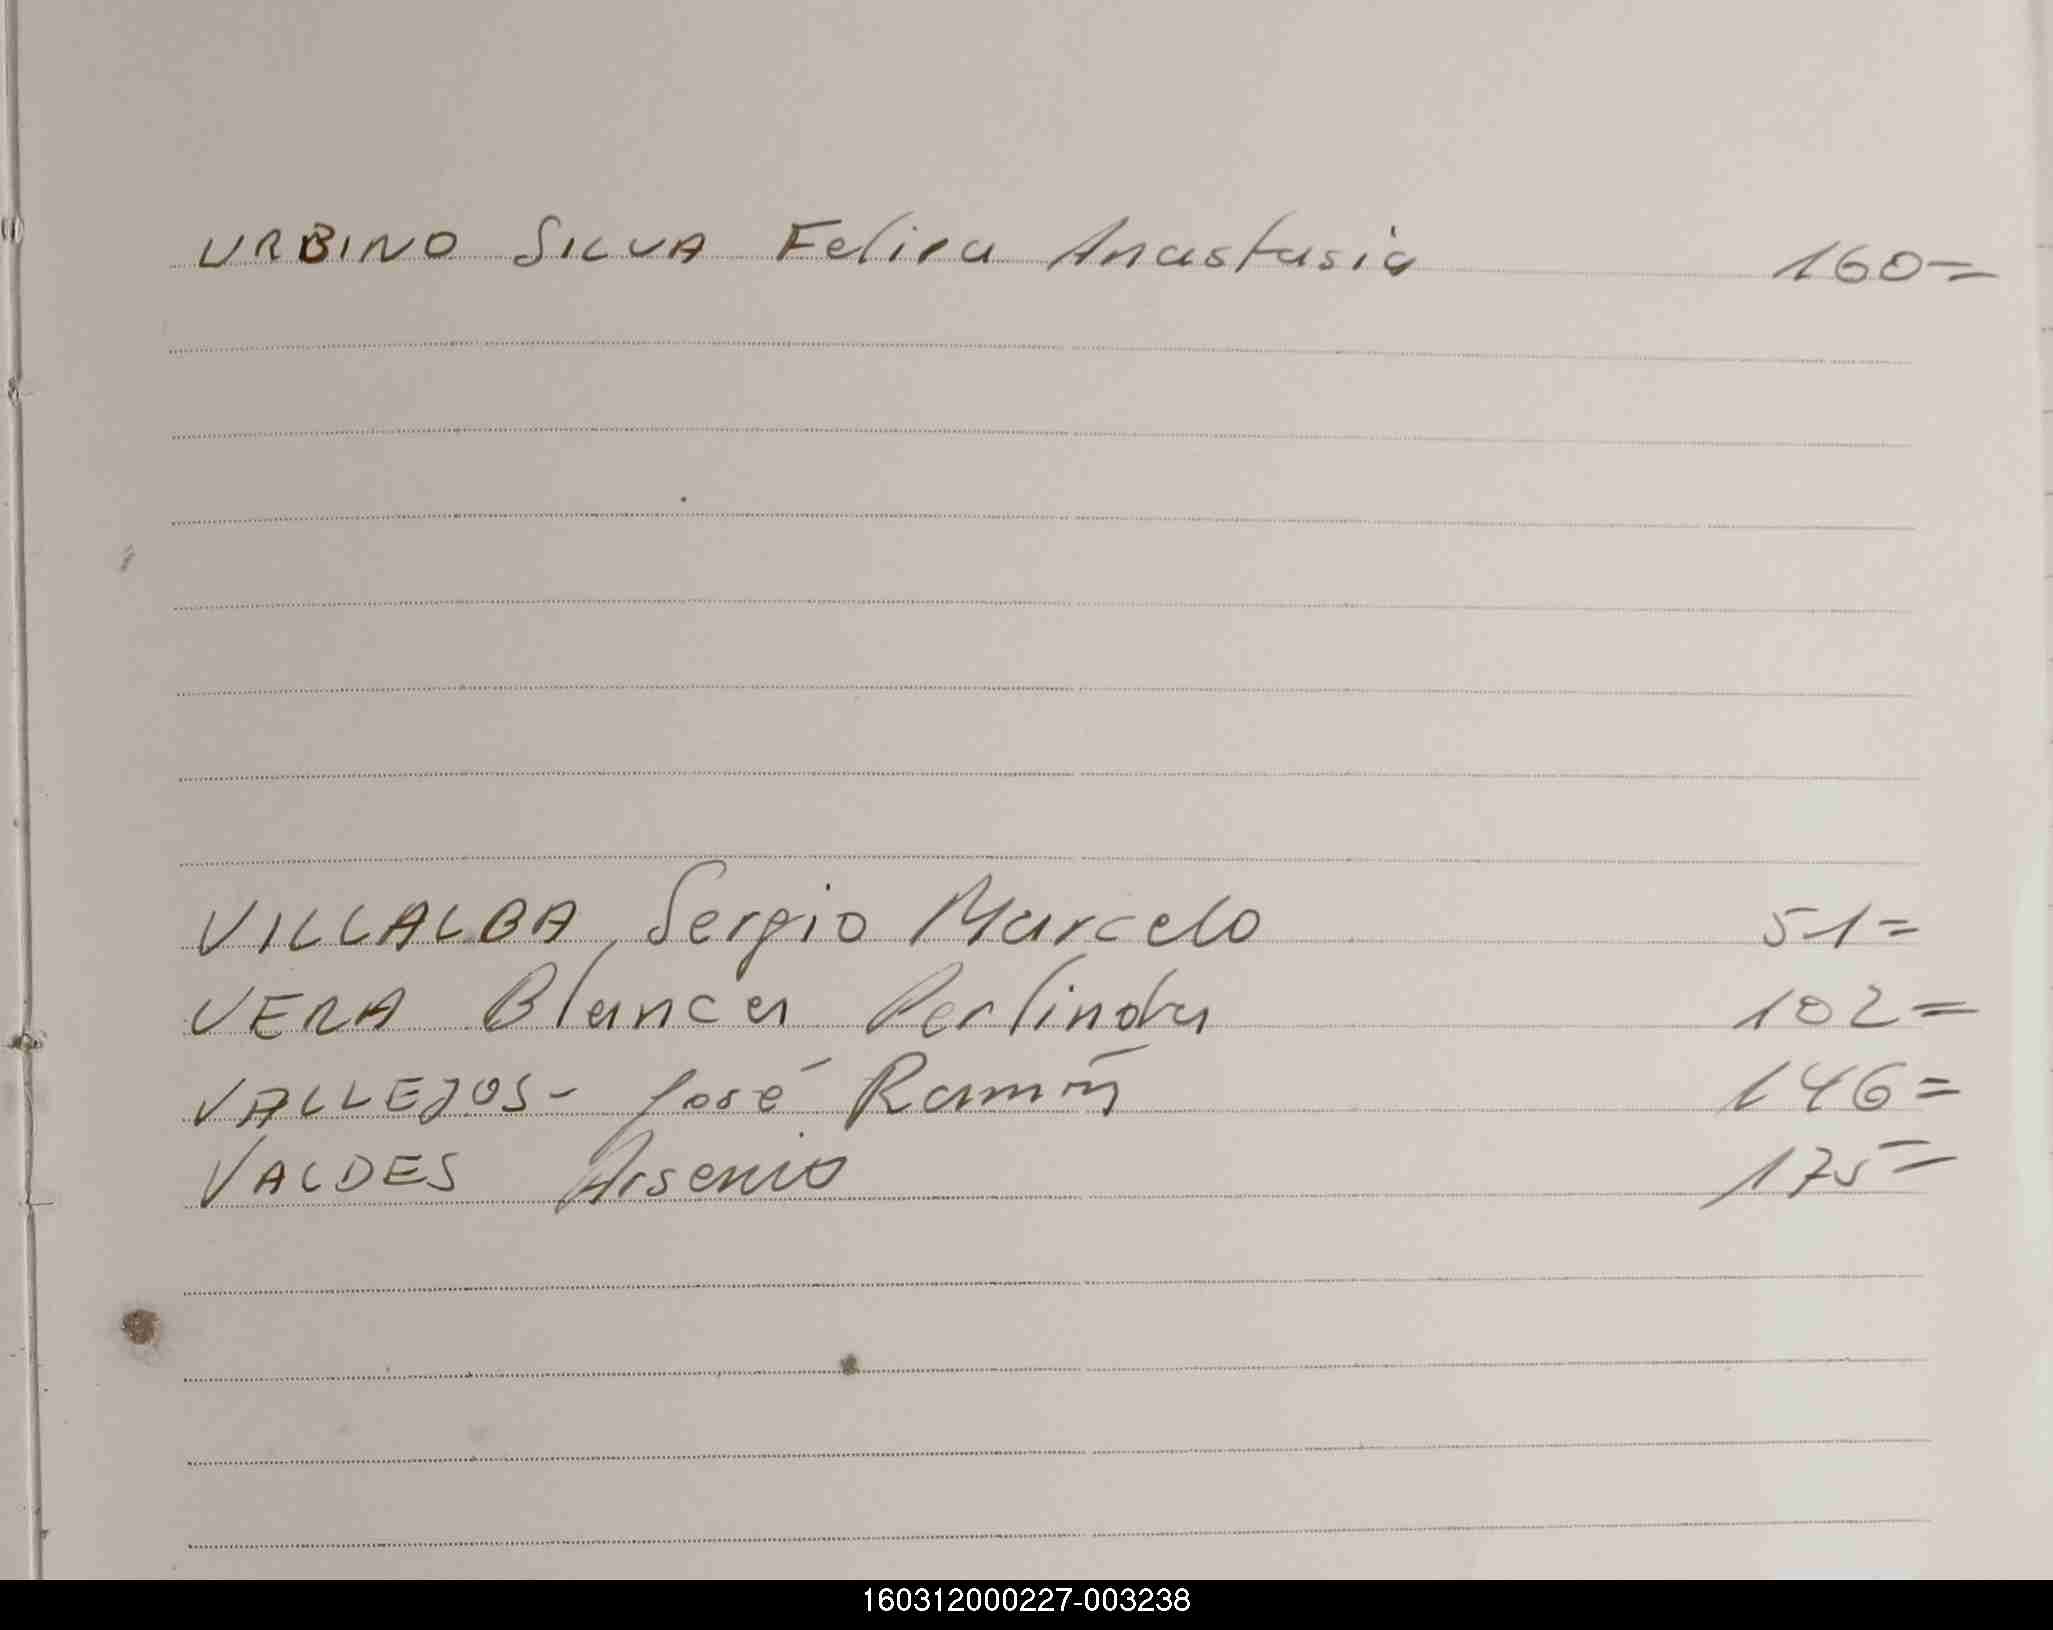 URBINO SILVA Felisa Anastasia 160=
VILLALBA, Sergio Marcelo 51=
VERA Blanca Perlinda 102=
VALLEJOS- José Ramón 146=
VALDES Arsenio 175=
160312000227-003238